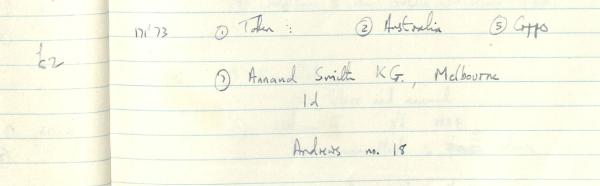 171'73 ① Token : ② Australia ⑤ Copps
k2
⑦ Annand Smith KG., Melbourne
1d
Andrews no. 18